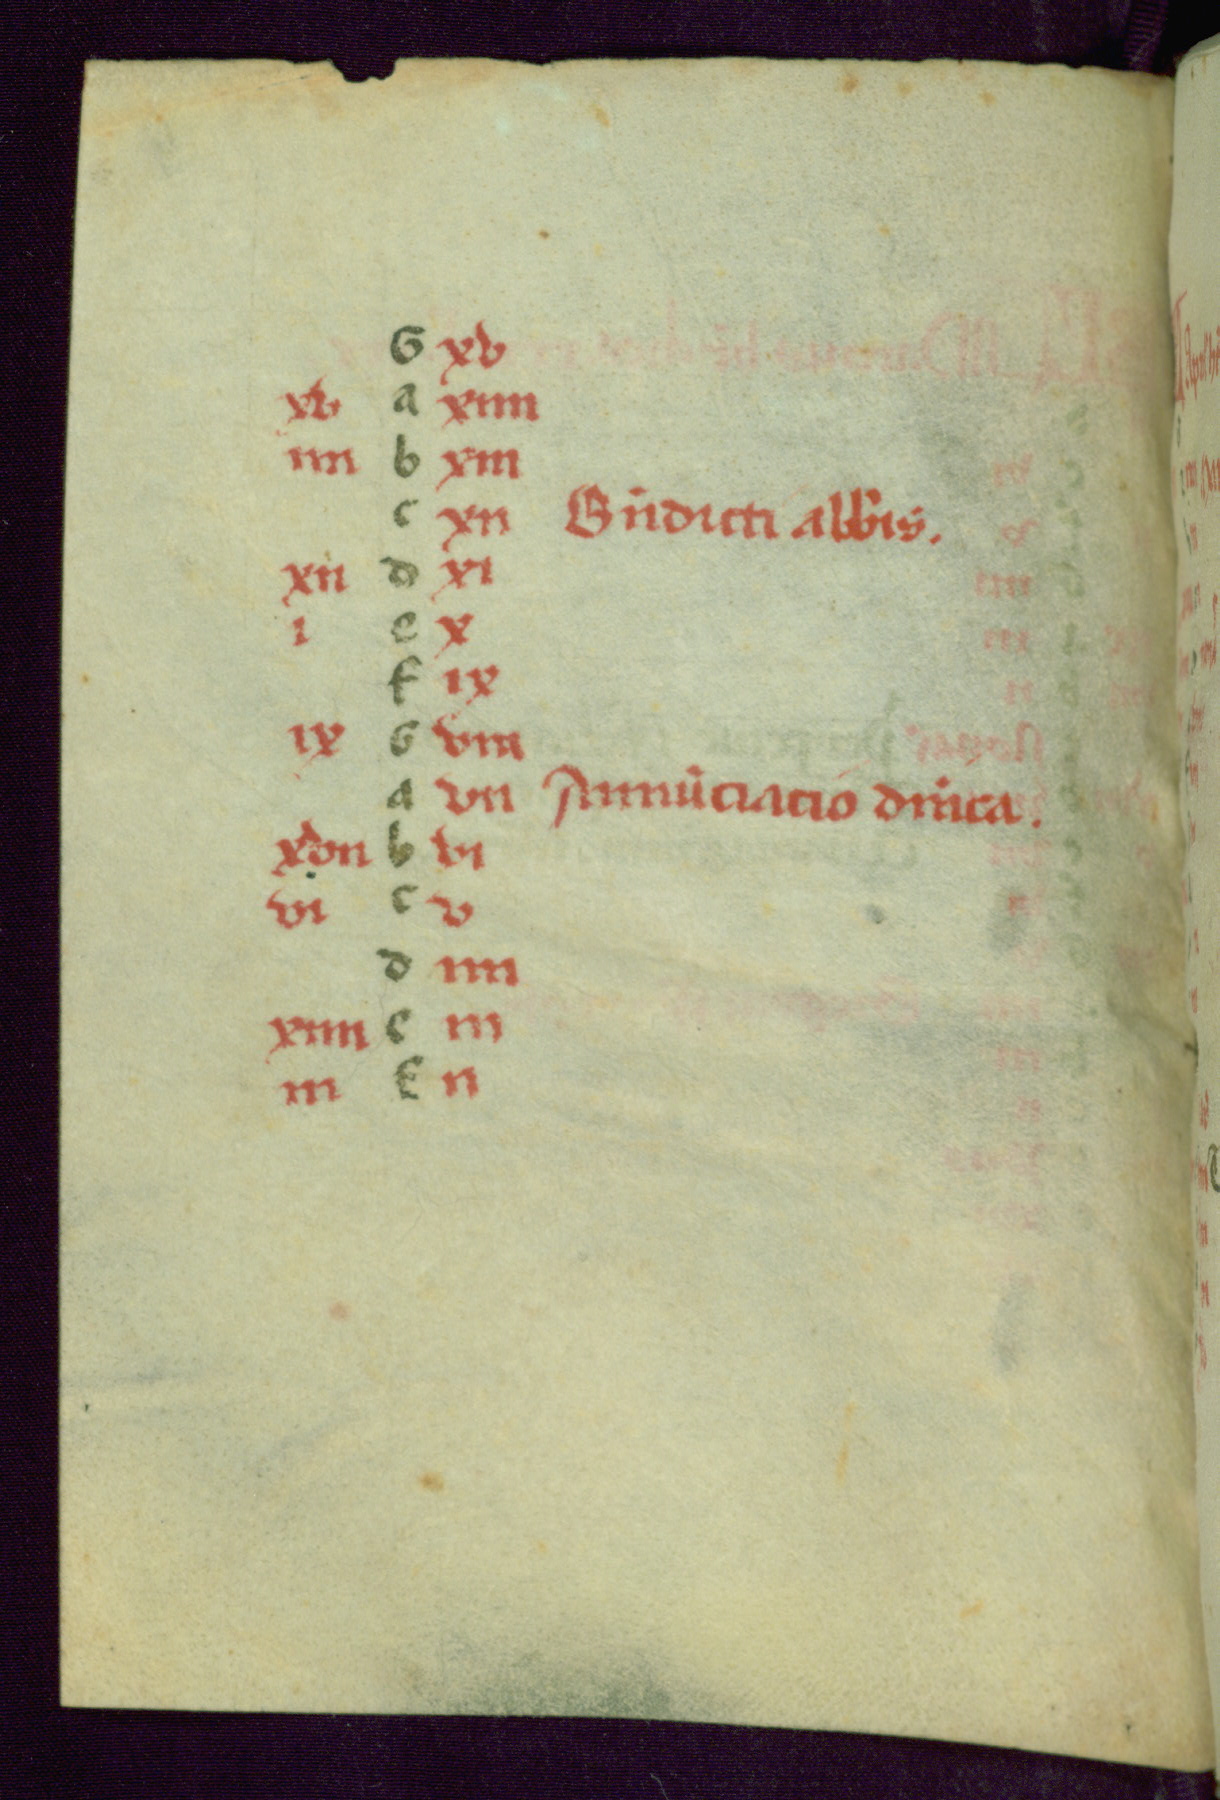 G xv
xv a xiiii
iiii b xiii
c xii Bn̄dicti abb̄is.
xii d xi
i e x
f ix
ix G viii
a vii Annūciacio dn̄ica.
xvii b vi
vi c v
d iiii
xiiii e iii
iii f ii